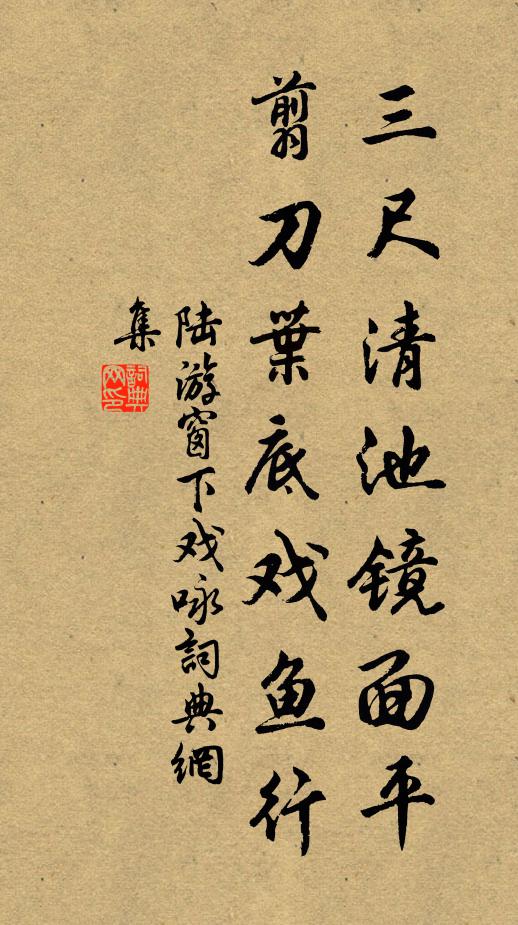 三尺清池镜面平
翦刀葉底戏鱼行
陆游窗下戏咏詞典網
集
詞典网印